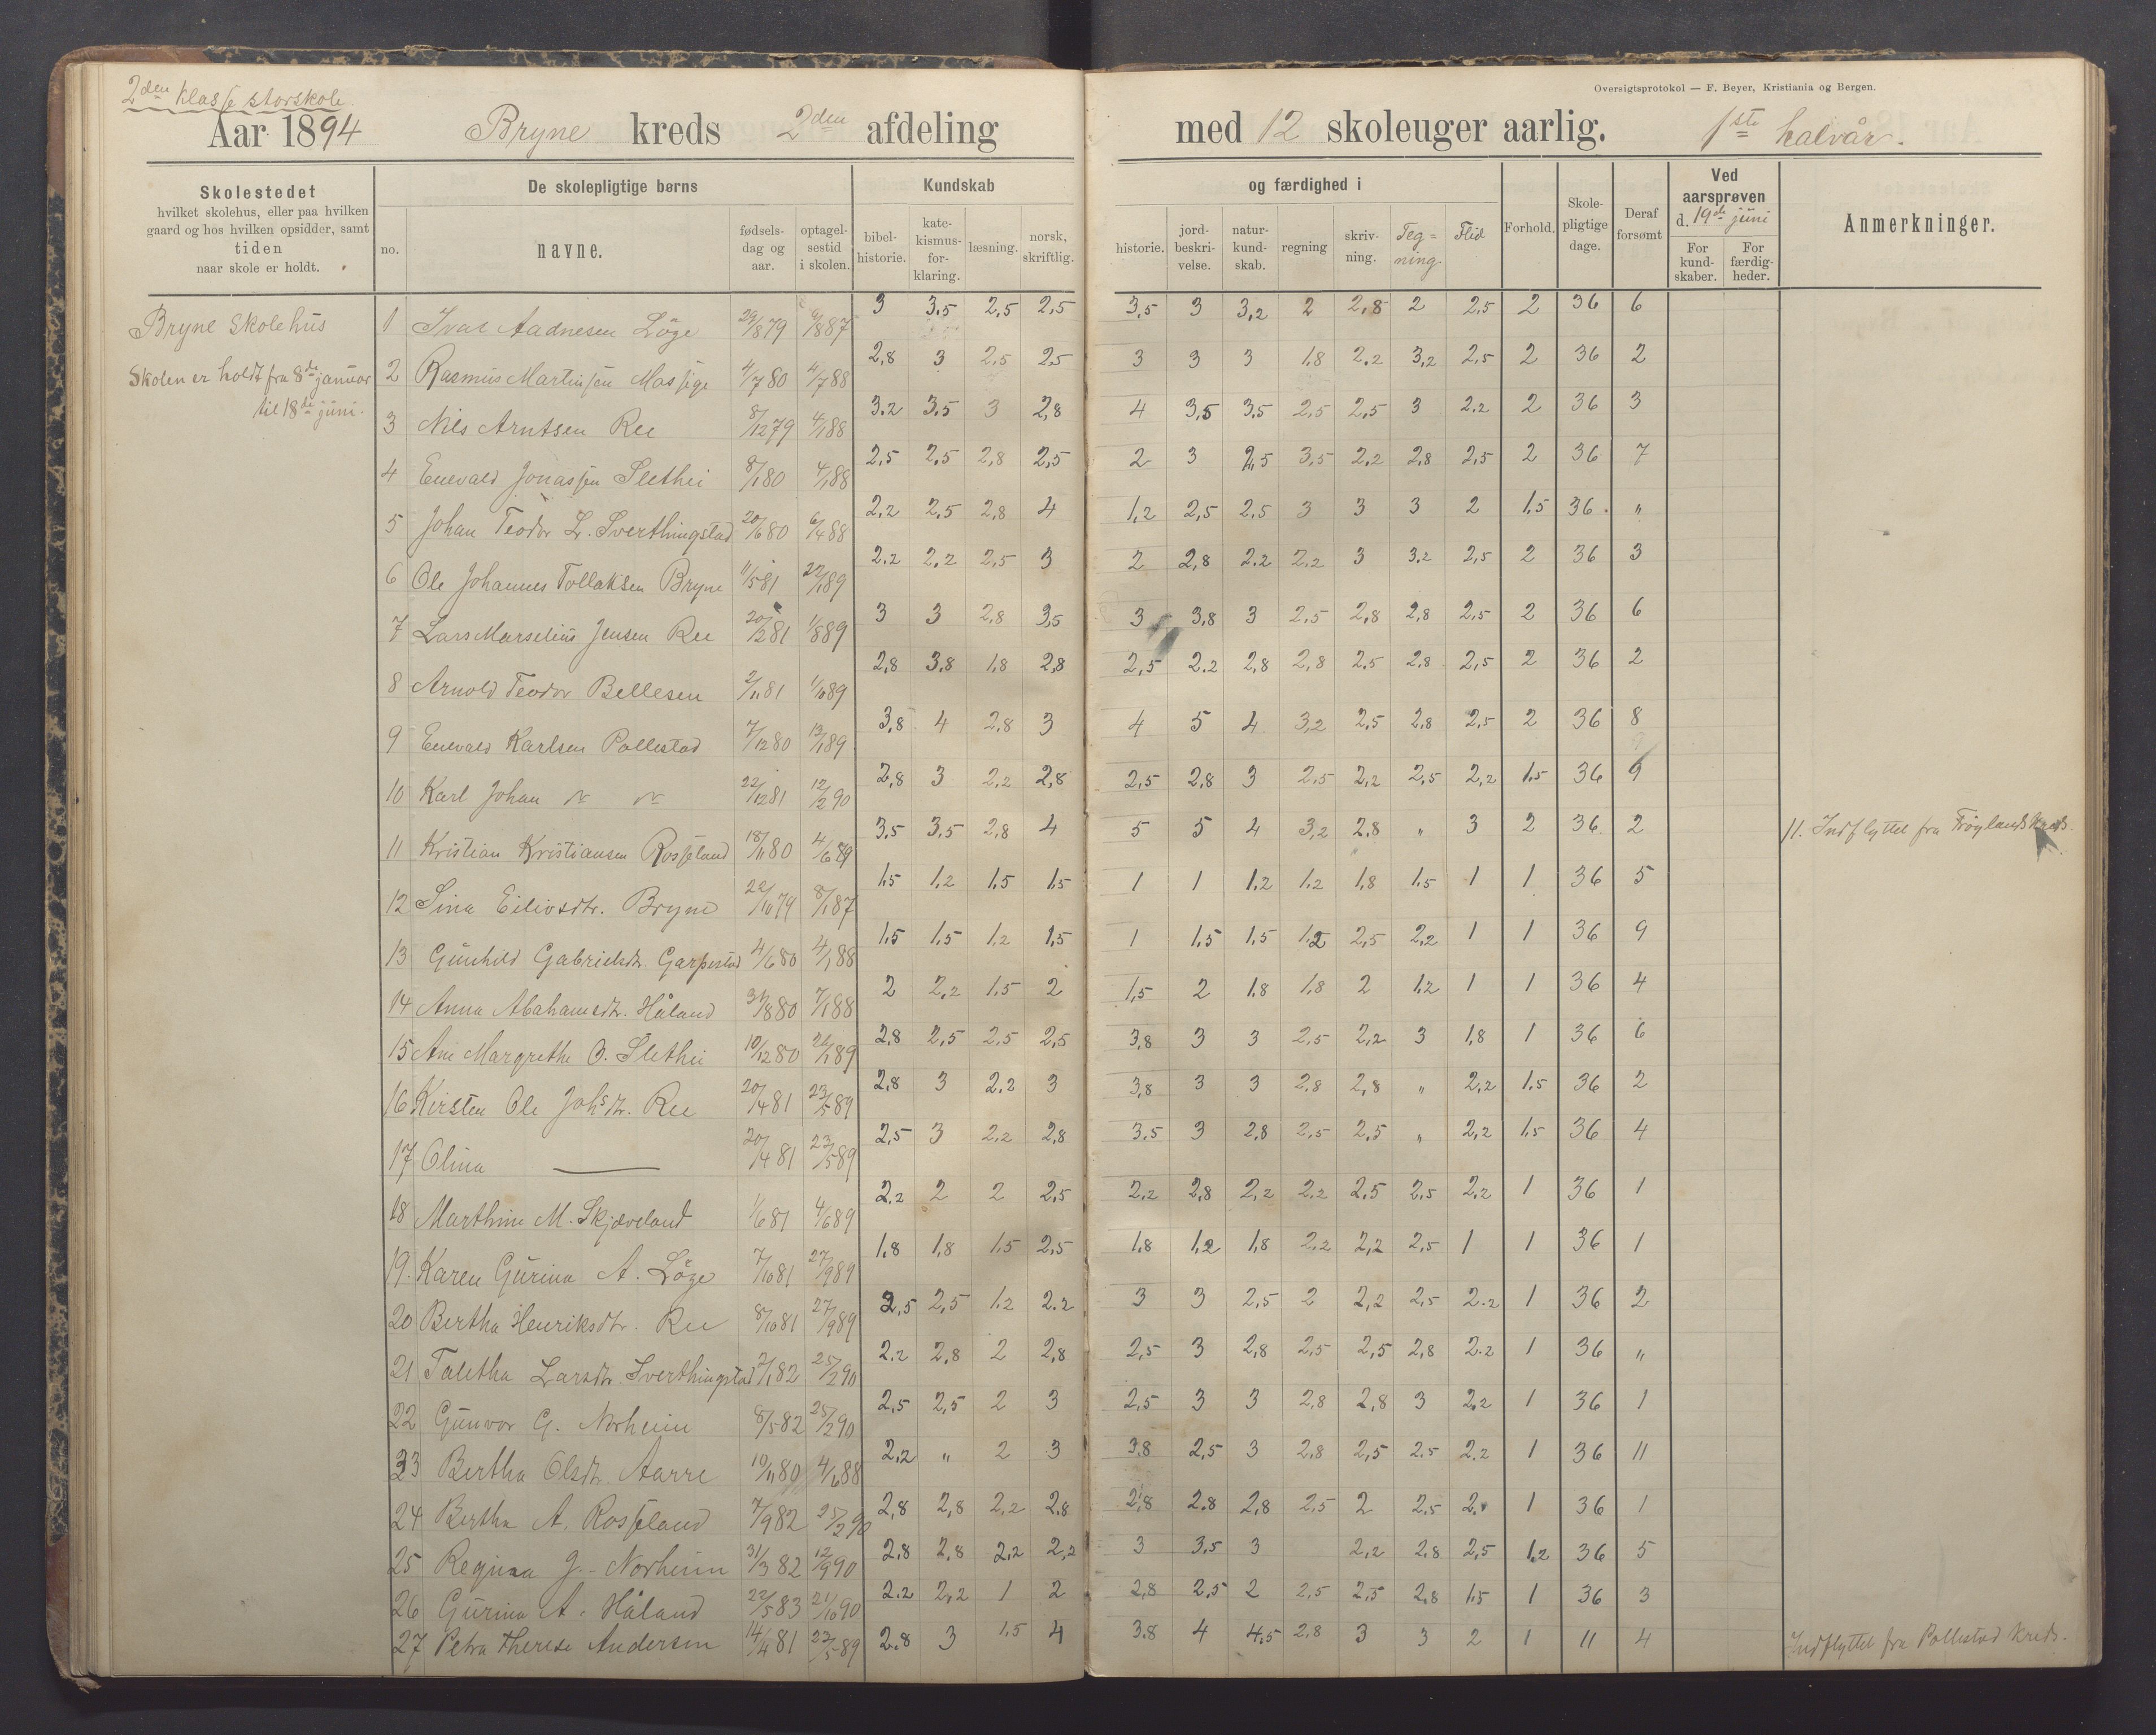 2den klasse storskole.
Oversigtsprotokol — F. Beyer, Kristiania og Bergen.
Aar 1894 Bryne kreds 2den afdeling med 12 skoleuger aarlig. 1ste halvår.
Skolestedet
hvilket skolehus, eller paa hvilken
gaard og hos hvilken opsidder, samt
tiden
naar skole er holdt.
De skolepligtige børns
no.
navne.
fødsels-
dag og
aar.
optagel-
sestid
i skolen.
Kundskab og færdighed i
bibel-
historie.
kate-
kismus-
for-
klaring.
læsning.
norsk,
skriftlig.
historie.
jord-
beskri-
velse.
natur-
kund-
skab.
regning
skriv-
ning.
Teg=
ning.
Flid
Forhold.
Skole-
pligtige
dage.
Deraf
forsømt
Ved
aarsprøven
d. 19de juni
For
kund-
skaber.
For
færdig-
heder.
Anmerkninger.
Bryne Skolehus
Skolen er holdt fra 8de januar
til 18de juni.
1 Ivar Aadnesen Löge 29/8 79 87 3 3,5 2,5 2,5 3,5 3 3,2 2 2,8 2 2,5 2 36 6
2 Rasmus Martinsen Massige 4/7 80 4/7 88 2,8 3 2,5 2,5 3 3 3 1,8 2,2 3,2 2,5 2 36 2
3 Nils Arntsen Ree 8/12 79 4/1 88 3,2 3,5 3 2,8 4 3,5 3,5 2,5 2,5 3 2,2 2 36 3
4 Enevald Jonassen Slethei 8/1 80 4/1 88 2,5 2,5 2,8 2,5 2 3 2,5 3,5 2,2 2,8 2,5 2 36 7
5 Johan Teodor L. Sverthingstad 20/6 80 6/4 88 2,2 2,5 2,8 4 1,2 2,5 2,5 3 3 3 2 1,5 36 "
6 Ole Johannes Tollaksen Bryne 11/5 81 22/1 89 2,2 2,2 2,5 3 2 2,8 2,2 2,2 3 3,2 2,5 2 36 3
7 Lars Marselius Jensen Ree 20/2 81 1/8 89 3 3 2,8 3,5 3 3,8 3 2,5 2,8 2,8 2,5 2 36 6
8 Arnold Teodor Bellesen 2/11 81 1/10 89 2,8 3,8 1,8 2,8 2,5 2,2 2,8 2,8 2,5 2,8 2,5 2 36 2
9 Enevald Karlsen Pollestad 7/12 80 13/1 89 3,8 4 2,8 3 4 5 4 3,2 2,5 2,8 2,5 2 36 8
10 Karl Johan " " 22/12 81 12/2 90 2,8 3 2,2 2,8 2,5 2,8 3 2,5 2,2 2,5 2,2 1,5 36 9
11 Kristian Kristiansen Rosseland 18/11 80 4/6 89 3,5 3,5 2,8 4 5 5 4 3,2 2,8 " 3 2 36 2 11. Indflyttet fra Frøylands kreds.
12 Sina Eilivsdtr. Bryne 22/10 79 8/1 87 1,5 1,2 1,5 1,5 1 1 1,2 1,2 1,8 1,5 1 1 36 5
13 Gunhild Gabrielsdtr. Garpestad 4/6 80 4/1 88 1,5 1,5 1,2 1,5 1 1,5 1,5 1,2 2,5 2,2 1 1 36 9
14 Anna Abahamsdtr. Håland 31/8 80 7/1 88 2 2,2 1,5 2 1,5 2 1,8 1,8 2 1,2 1 1 36 4
15 Ane Margrethe O. Slethei 10/12 80 24/1 89 2,8 2,5 2,5 2,5 3,8 3 3 2,5 2,2 3 1,8 1 36 6
16 Kirsten Ole Johsdtr. Ree 20/4 81 23/5 89 2,8 3 2,2 3 3,8 3 3 2,8 2,8 " 2,2 1,5 36 2
17 Olina — 20/4 81 23/5 89 2,5 3 2,2 2,8 3,5 3 2,8 2,5 2,5 " 2,2 1,5 36 4
18 Marthine M. Skjæveland 1/6 81 4/6 89 2,2 2 2 2,5 2,2 2,8 2,2 2,2 2,5 2,5 2,2 1 36 1
19. Karen Gurina A. Löge 7/10 81 27/9 89 1,8 1,8 1,5 2,5 1,8 1,2 1,8 2,2 2,2 2,5 1 1 36 1
20 Bertha Henriksdtr. Ree 8/10 81 27/9 89 2,5 2,5 1,2 2,2 3 3 2,5 2 2,2 2,5 2,2 1 36 2
21 Taletha Larsdtr. Sverthingstad 2/1 82 25/2 90 2,2 2,8 2 2,8 2,5 3 2,8 2,5 2,5 2,8 2,2 1 36 "
22 Gunvor G. Norheim 8/5 82 25/2 90 2,5 2,5 2 3 2,5 3 3 2,8 2,8 3 2,2 1 36 1
23 Bertha Olsdtr. Aarre 10/11 80 4/6 88 2,2 " 2 3 3,8 2,5 3 2,8 2,5 2,5 2,2 1 36 11
24 Bertha A. Rosseland 7/9 82 25/2 90 2,8 2,8 2,2 2,8 2,8 2,8 2,8 2,5 2 2,5 2 1 36 1
25 Regina G. Norheim 31/3 82 12/9 90 2,8 2,8 2,2 2,2 3 3,5 3 2,2 2,8 2,5 1,2 36 5
26 Gurina A. Håland 22/5 83 21/10 90 2,2 2,2 1 2 2,8 2,5 2 2,5 2,5 2,8 1,5 1 36 3
27 Petra Therese Andersen 14/4 81 22/5 89 2,8 3 1,5 4 3,8 4 4,5 2,8 3 3 2 1 11 4 Indflyttet fra Pollestad kreds.